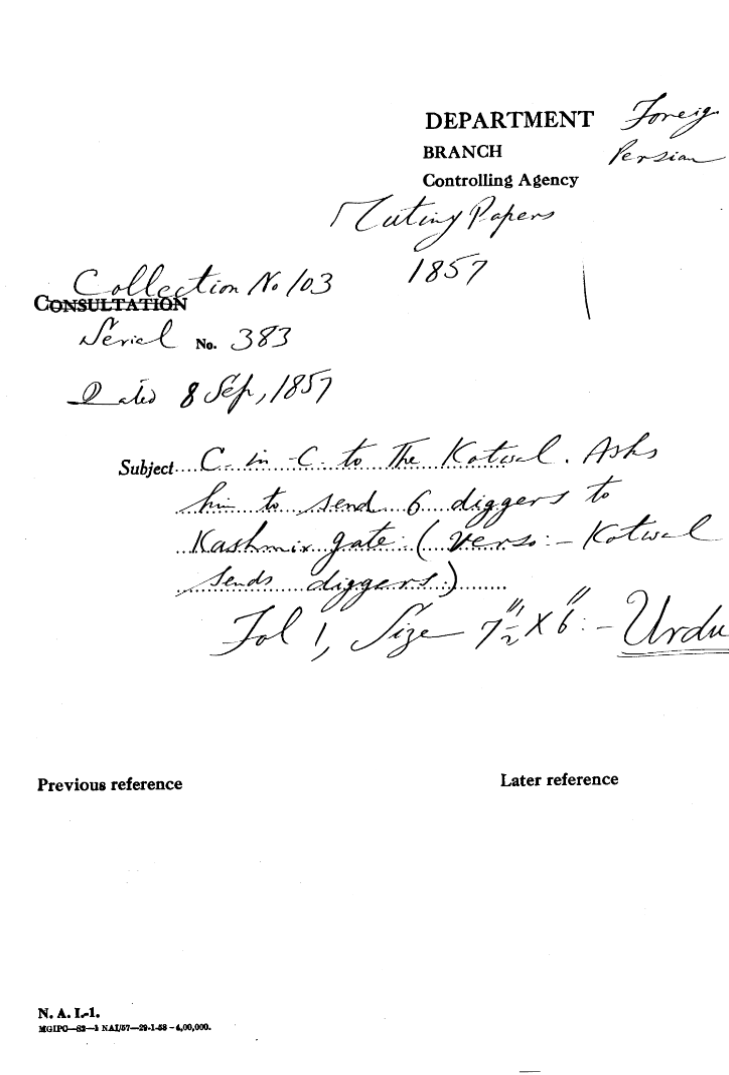 DEPARTMENT Foreign
BRANCH Persian
Controlling Agency
Mutiny Papers
1857
Collection No 103
CONSULTATION
Serial No. 383
Dated 8 Sep, 1857
Subject C-in-C to The Kotwal. Asks
him to send 6 diggers to
Kashmir gate. (Verso:- Kotwal
sends diggers.)
Fol 1, Size 7½" X 6":- Urdu
Previous reference
Later reference
N. A. I.-1.
MGIPC—S2—1 NAI/57—29-1-58 – 4,00,000.